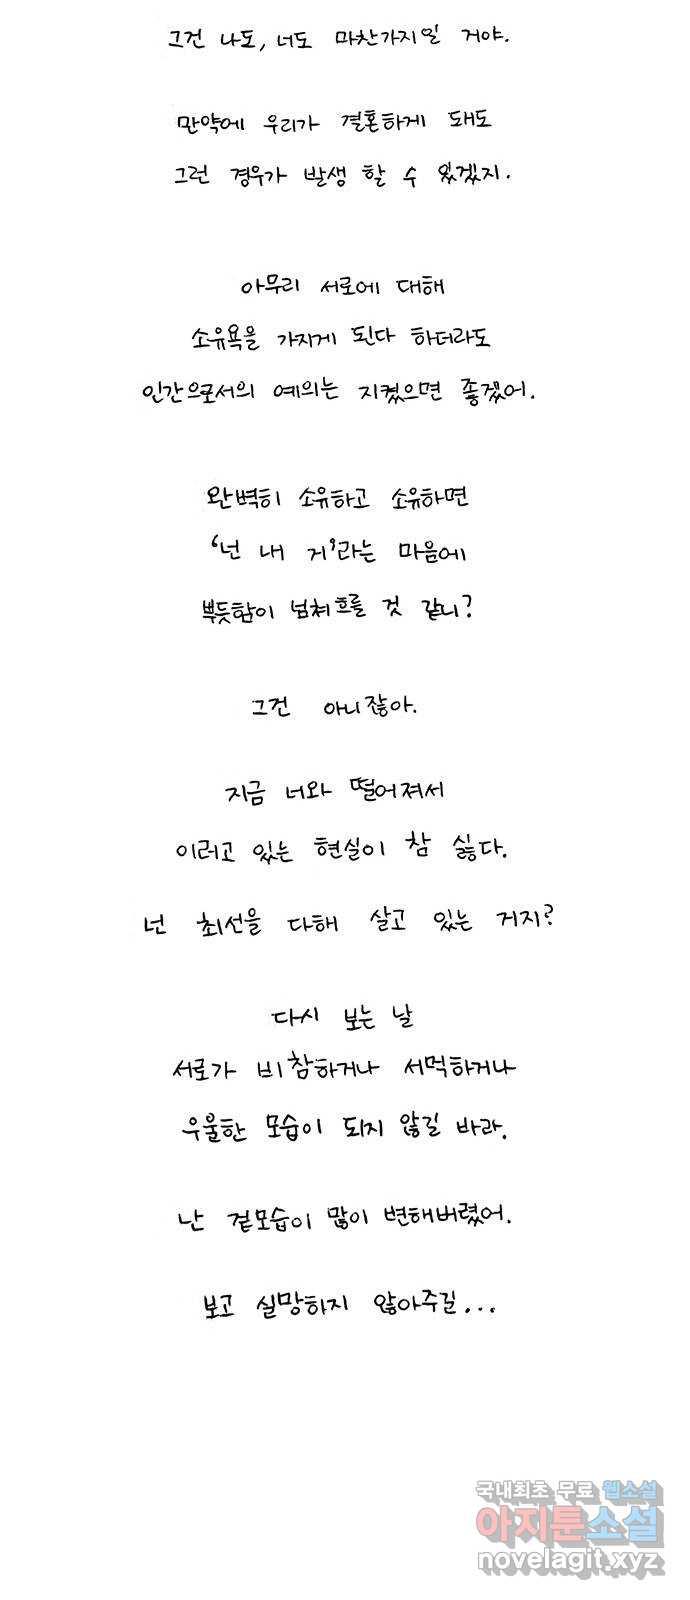 그건 나도, 너도 마찬가지일 거야.
만약에 우리가 결혼하게 돼도
그런 경우가 발생 할 수 있겠지.
아무리 서로에 대해
소유욕을 가지게 된다 하더라도
인간으로서의 예의는 지켰으면 좋겠어.
완벽히 소유하고 소유하면
'넌 내 거'라는 마음에
뿌듯함이 넘쳐흐를 것 같니?
그건 아니잖아.
지금 너와 떨어져서
이러고 있는 현실이 참 싫다.
넌 최선을 다해 살고 있는 거지?
다시 보는 날
서로가 비참하거나 서먹하거나
우울한 모습이 되지 않길 바라.
난 겉모습이 많이 변해버렸어.
보고 실망하지 않아주길...
국내최초 무료 웹소설
아지툰소설
novelagit.xyz